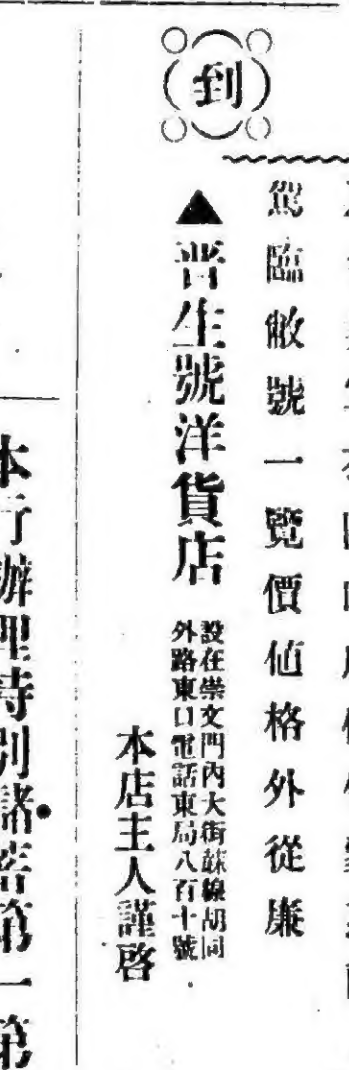 駕臨敝號一覽價值格外從廉
到
▲晋生號洋貨店
設在崇文門內大街蘇線胡同
外路東口電話東局八百十號
本店主人謹啓
本行辦理特別諸
第一第